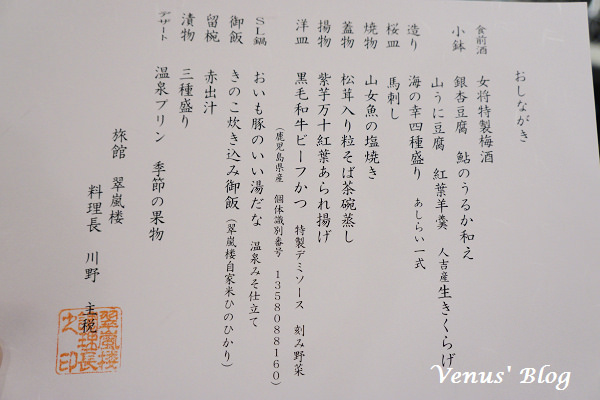 おしながき
食前酒　女将特製梅酒
小鉢　銀杏豆腐　鮎のうるか和え
山うに豆腐　紅葉羊羹　人吉産生きくらげ
造り　海の幸四種盛り　あしらい一式
桜皿　馬刺し
焼物　山女魚の塩焼き
蓋物　松茸入り粒そば茶碗蒸し
揚物　紫芋万十紅葉あられ揚げ
洋皿　黒毛和牛ビーフかつ　特製デミソース　刻み野菜
（鹿児島県産　個体識別番号　1358088160）
SL鍋　おいも豚のいい湯だな　温泉みそ仕立て
御飯　きのこ炊き込み御飯（翠嵐楼自家米ひのひかり）
留椀　赤出汁
漬物　三種盛り
デザート　温泉プリン　季節の果物
旅館　翠嵐楼
料理長　川野　主税
翠嵐楼
料理長
之印
Venus' Blog